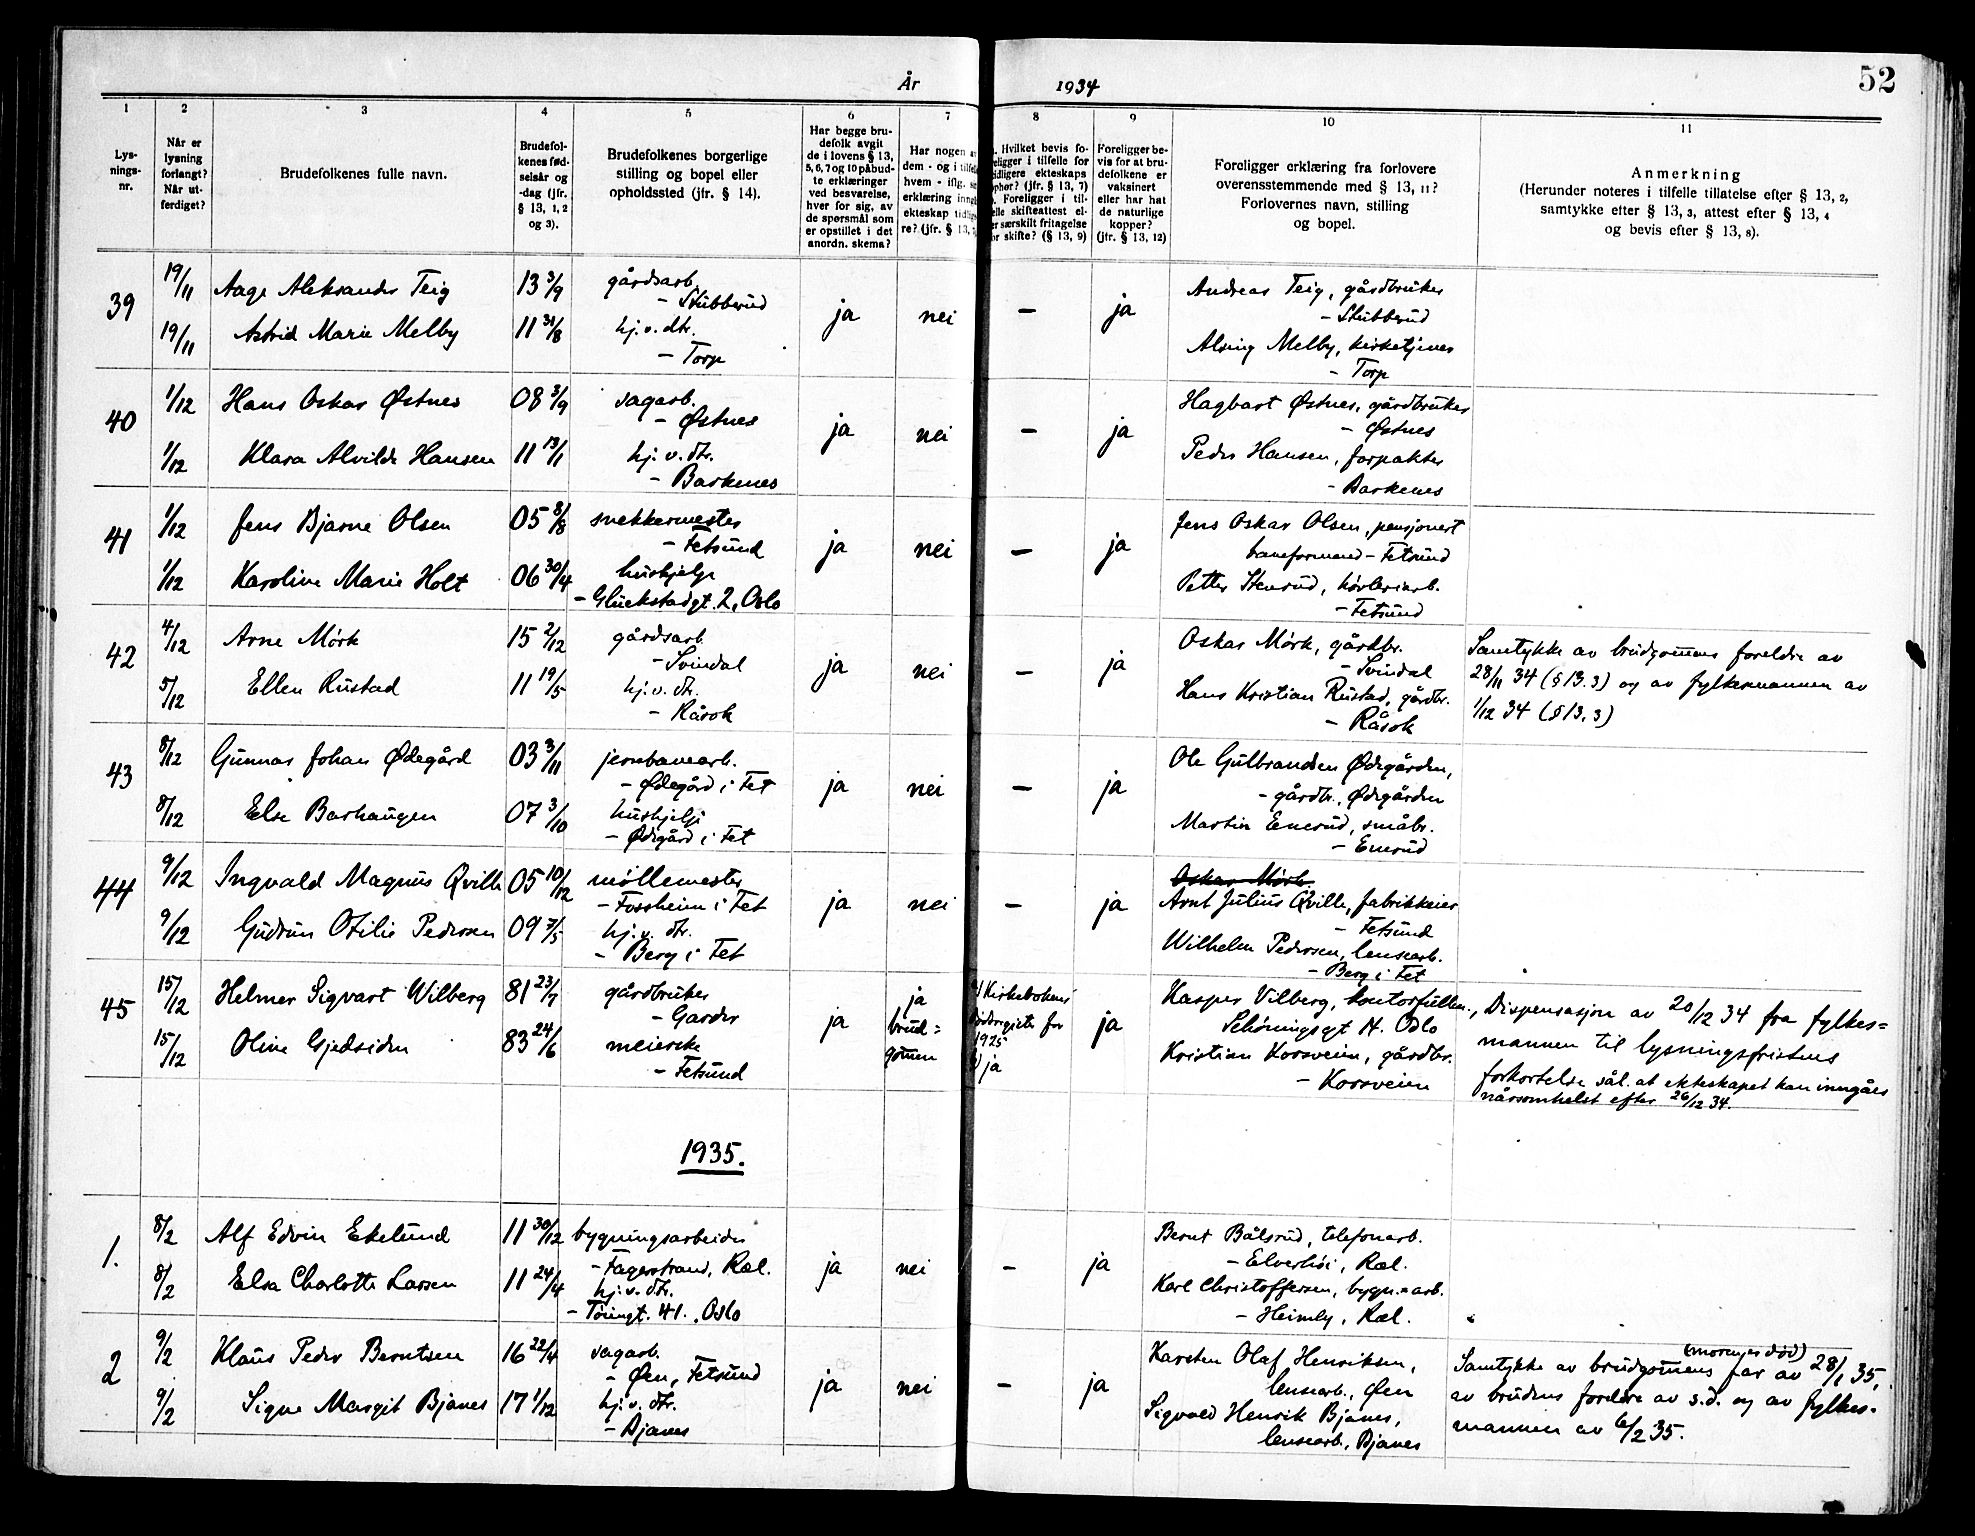 År 1934
52
1 2 3 4 5 6 7 8 9 10 11
Lys-
nings-
nr.
Når er
lysning
forlangt?
Når ut-
ferdiget?
Brudefolkenes fulle navn.
Brudefol-
kenes fød-
selsår og
-dag (jfr.
§ 13, 1, 2
og 3).
Brudefolkenes borgerlige
stilling og bopel eller
opholdssted (jfr. § 14).
Har begge bru-
defolk avgit
de i lovens § 13,
5, 6, 7 og 10 påbud-
te erklæringer
ved besvarelse,
hver for sig, av
de spørsmål som
er opstillet i det
anordn. skema?
Har nogen
dem - og i tilfelle
hvem - iflg.
erklæring inng
ekteskap tidlig
re? (jfr. § 13,
Hvilket bevis fo-
religger i tilfelle for
tidligere ekteskaps
ophør? (jfr. § 13, 7)
Foreligger i til-
felle skifteattest el-
ler særskilt fritagelse
for skifte? (§ 13, 9)
Foreligger be-
vis for at bru-
defolkene er
vaksinert
eller har hat
de naturlige
kopper?
(jfr. § 13, 12)
Foreligger erklæring fra forlovere
overensstemmende med § 13, 11?
Forlovernes navn, stilling
og bopel.
Anmerkning
(Herunder noteres i tilfelle tillatelse efter § 13, 2,
samtykke efter § 13, 3, attest efter § 13, 4
og bevis efter § 13, 8).
39 19/11 Aage Aleksander Teig 13 3/9 gårdsarb. ja nei — ja Andreas Teig, gårdbruker
– Stubberud – Stubberud
19/11 Astrid Marie Melby 11 31/8 hj.v.dtr. Melby, kirketjener
– Torp – Torp
40 1/12 Hans Oskar Østnes 08 3/9 sagarb. ja nei — ja Hagbart Østnes, gårdbruker
– Østnes – Østnes
1/12 Klara Alvilde Hansen 11 13/1 hj.v.dtr. Peder Hansen, forpakter
– Barkenes – Barkenes
41 1/12 Jens Bjarne Olsen 05 8/8 snekkermester ja nei — ja Jens Oskar Olsen, pensjonert
– Fetsund baneformand – Fetsund
1/12 Karoline Marie Holt 06 30/4 hushjelp Petter Stensrud, høvleriarb.
– Glückstadgt. 2, Oslo – Fetsund
42 4/12 Arne Mörk 15 2/12 gårdsarb. ja nei — ja Oskar Mörk, gårdbr. Samtykke av brudgommens foreldre av
– Svindal – Svindal 28/11 34 (§ 13.3) og av fylkesmannen av
5/12 Ellen Rustad 11 19/5 hj.v.dtr. Hans Kristian Rustad, gårdbr. 1/12 34 (§ 13.3)
– Råsok – Råsok
43 8/12 Gunnar Johan Ødegård 03 3/11 jernbanearb. ja nei — ja Ole Gulbrandsen Ødegården,
– Ødegård i Fet – gårdbr., Ødegården
8/12 Else Barhaugen 07 3/10 hushjelp Martin Enerud, småbr.
– Ødegård i Fet – Enerud
44 9/12 Ingvald Magnus Qville 05 10/12 möllemester ja nei — ja Oskar Mörk
– Fossheim i Fet Arnt Julius Qville, fabrikkeier
– Fetsund
9/12 Gudrun Otilie Pedersen 09 7/5 hj.v.dtr. Wilhelm Pedersen, lensearb.
– Berg i Fet – Berg i Fet
45 15/12 Helmer Sigvart Wilberg 81 23/7 gårdbruker ja ja brud= gommen Kirkebokens dødsregister for 1925 ja ja Kasper Vilberg, kontorfullm., Dispensasjon av 20/12 34 fra fylkes=
– Garder Schöningsgt 14. Oslo mannen til lysningsfristens
15/12 Oline Gjedsiden 83 24/6 meierske Kristian Korsveien, gårdbr. forkortelse sål. at ekteskapet kan inngåes
– Fetsund – Korsveien nårsomhelst efter 26/12 34.
1935.
1. 8/2 Alf Edvin Ekelund 11 30/12 bygningsarbeider ja nei — ja Bernt Bålsrud, telefonarb.
– Fagerstrand, Ræl. – Elverhöi, Ræl.
8/2 Elsa Charlotte Larsen 11 24/4 hj.v.dtr. Karl Christoffersen, bygn.=arb.
– 41., Oslo – Heimly, Ræl.
2 9/2 Klaus Peder Berntsen 16 22/4 sagarb. ja nei — ja Karsten Olaf Henriksen, (moren er död)
– Øen, Fetsund lensearb., Øen Samtykke av brudgommens far av 28/1 35,
9/2 Signe Margit Bjanes 17 1/12 hj.v.dtr. Sigvald Henrik Bjanes, av brudens foreldre av s.d. og av fylkes-
– Bjanes lensearb., Bjanes mannen av 6/2 35.